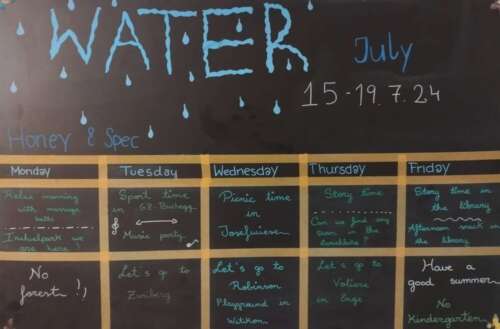 WATER
July
15-19.7.24
Honey & Spec
Monday
Tuesday
Wednesday
Thursday
Friday
Relax morning
with massage
balls
Irchelpark we
are here!
Sport time
in GZ. Buchegg
Music party
Picnic time
in
Josefwiese
Story time
Can we find any
in the
Story time in
the library
Afternoon snack in
the library
No
forest!
Let's go to
Let's go to
Robinson
Playground in
Witikon
Let's go to
Voliere
in Enge
Have a
good summer
No
Kindergarten